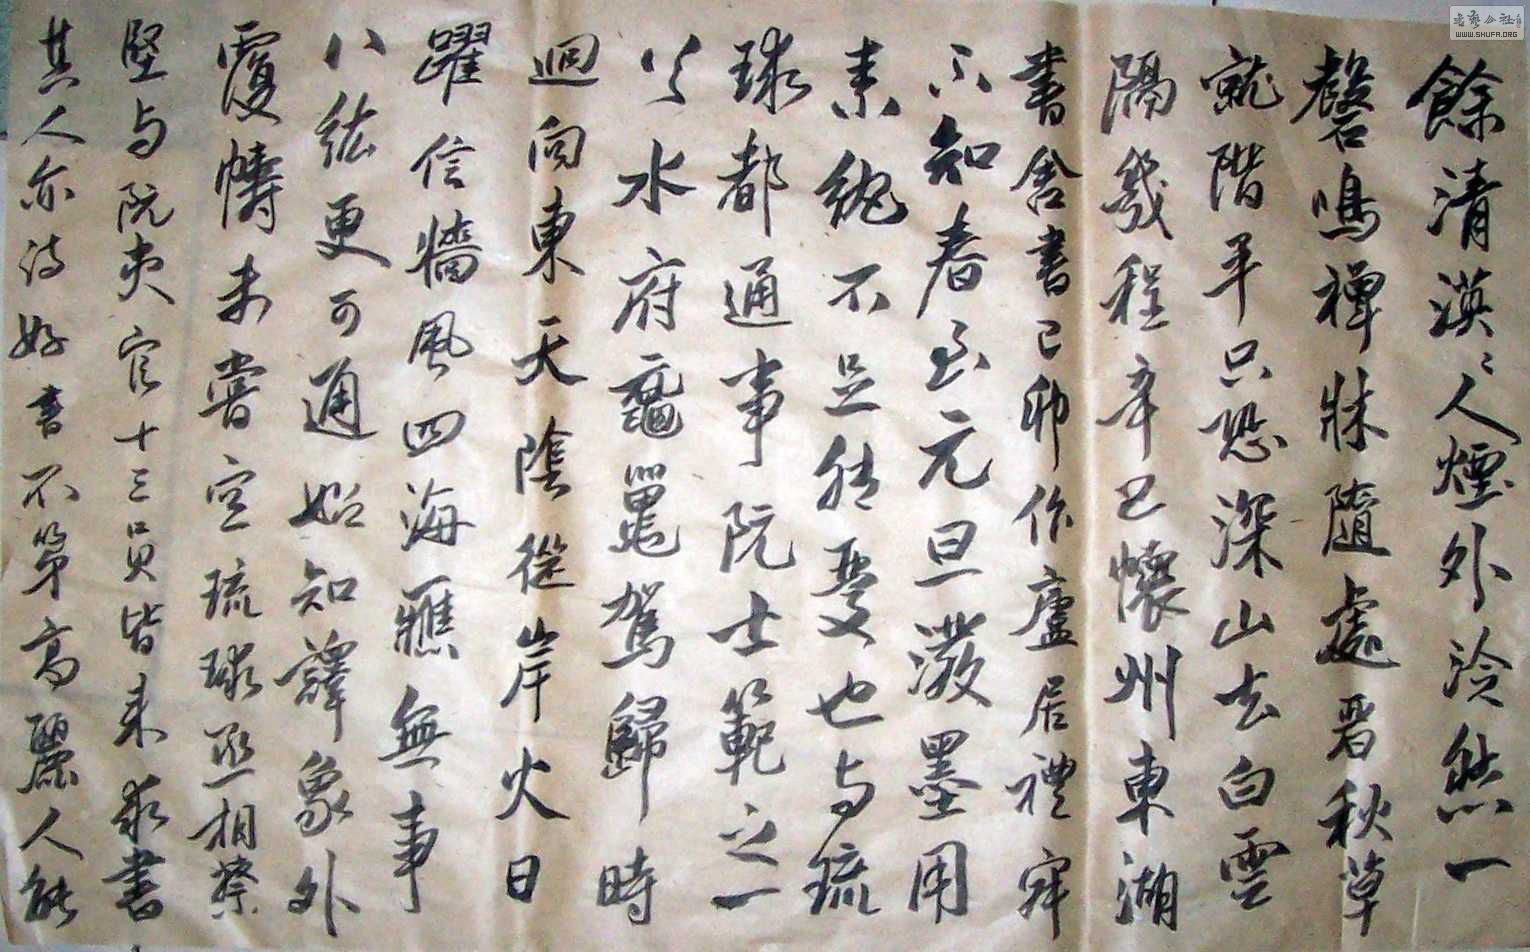 餘清漠〻人煙外泠然一
磬鳴禪牀隨處著秋草
就階平只恐深山去白雲
隔幾程辛巳懷州東湖
書舍書己卯作廬居禮寀
不知春至元旦潑墨用
素紈不足猜憂也与琉
球都通事阮士範之一
公水府黿鼉駕歸時
迴向東天陰從岸火日
躍信牆風四海雁無事
八紘更可通始知譯象外
覆幬未嘗空琉球丞相蔡
堅与阮夷官十三員皆来求書
其人亦詩好書不第高麗人能
書舍
WWW.SHUFA.ORG